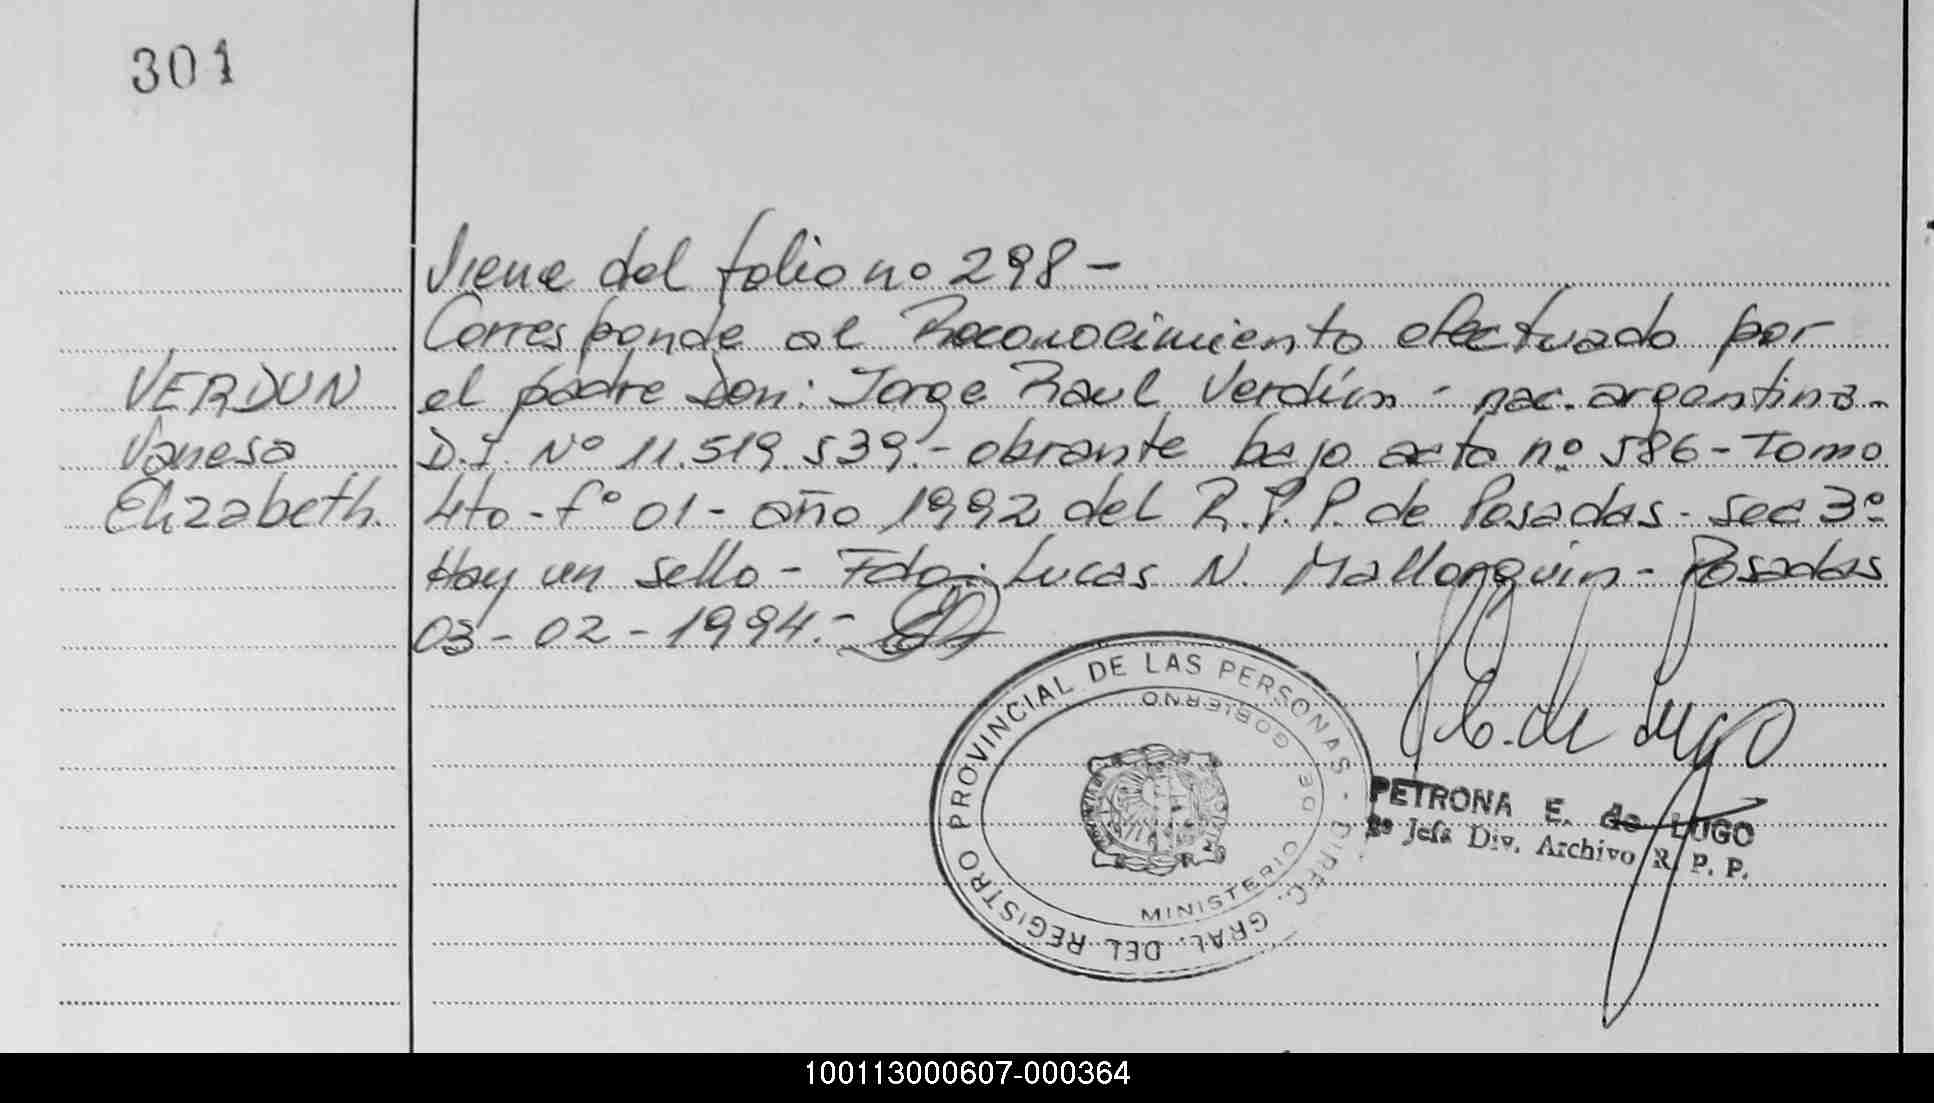 301
Viene del folio nº 298 -
Corresponde al Reconocimiento efectuado por
VERDUN
el padre Don: Jorge Raul Verdún - nac. argentina -
Vanesa
D.I. Nº 11.519.539.- obrante bajo acta nº 586 - Tomo
Elizabeth.
4to - fº 01 - año 1992 del R.P.P. de Posadas - sec 3º
Hay un sello - Fdo: Lucas N. Mallorquin - Posadas
03-02-1994.-
DIREC. GRAL. DEL REGISTRO PROVINCIAL DE LAS PERSONAS -
MINISTERIO DE GOBIERNO
P. E. de Lugo
PETRONA E. de LUGO
2º Jefa Div. Archivo R. P. P.
100113000607-000364